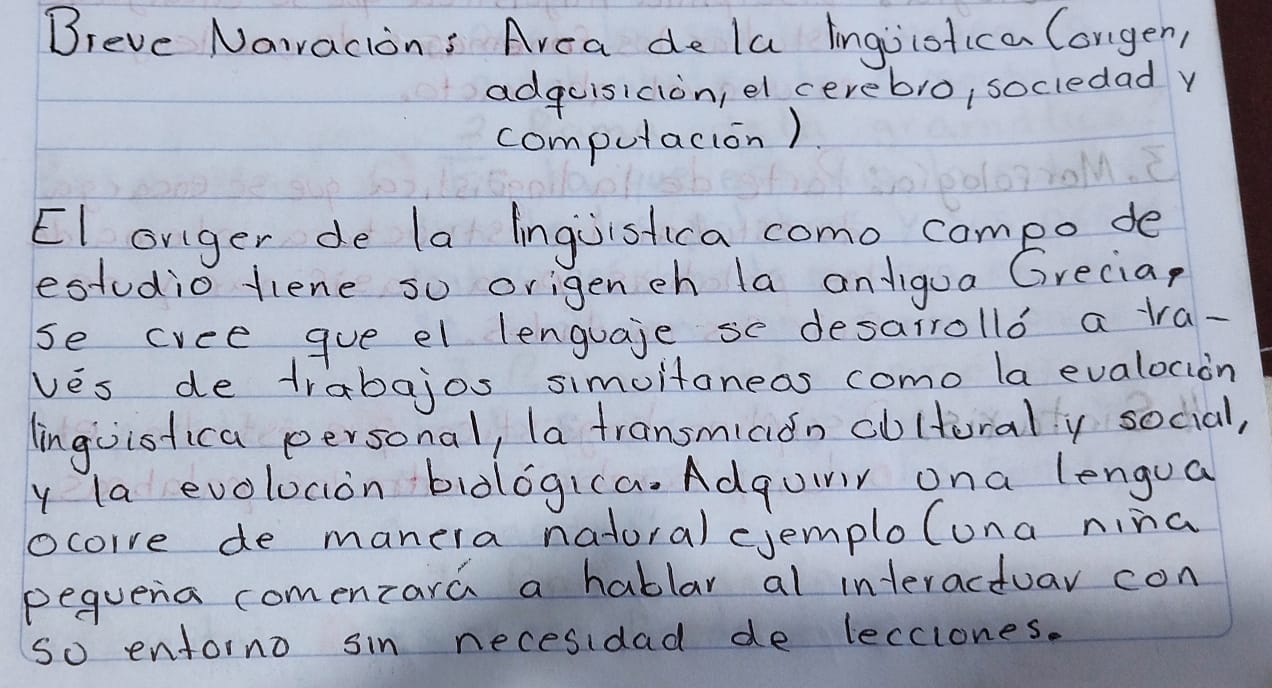 Breve Narración: Area de la lingüistica (origen,
adquisición, el cerebro, sociedad y
computación).
El origer de la lingüistica como campo de
estudio tiene su origen eh la antigua Grecia,
se cree que el lenguaje se desarrolló a tra-
vés de trabajos simultaneos como la evaloción
lingüistica personal, la transmición cultural y social,
y la evolución biológica. Adquirir una lengua
ocorre de manera natural ejemplo (una niña
pequeña comenzará a hablar al interactuar con
su entorno sin necesidad de lecciones.